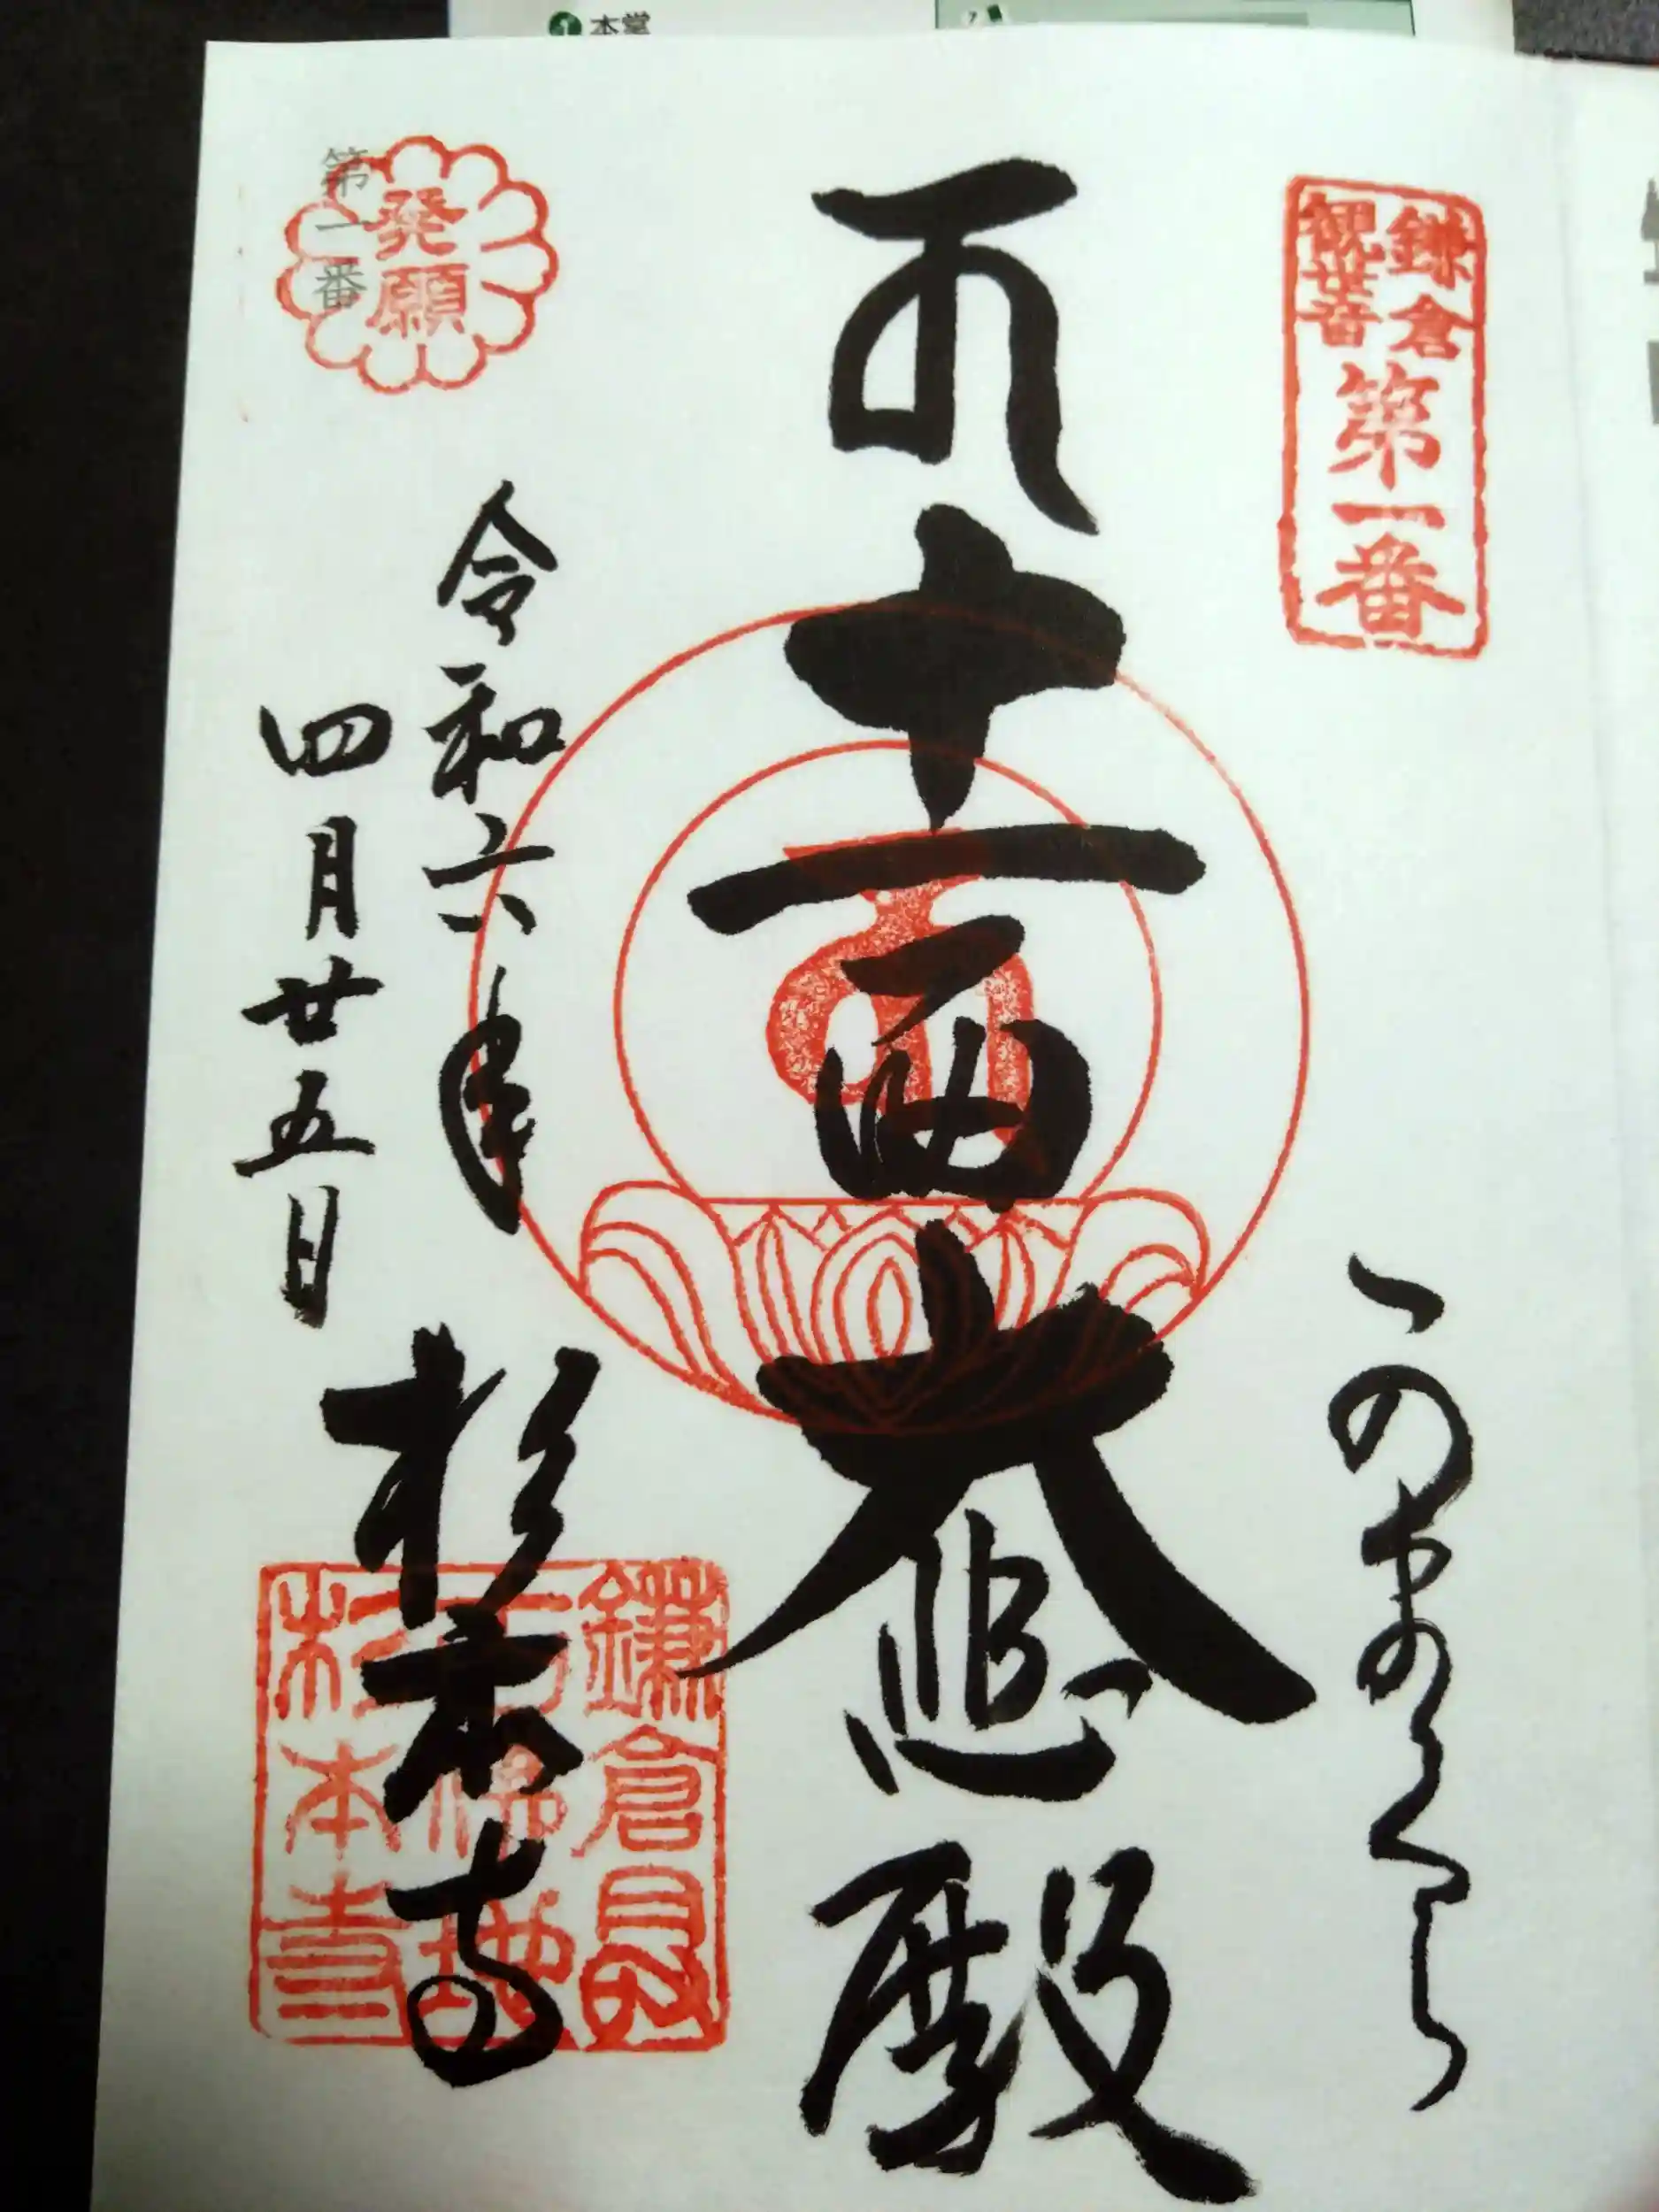 1 本堂
7
鎌倉
観世音
第一番
十一面大悲殿
第一番
発願
令和六年
四月廿五日
杉本寺
鎌倉最
古佛地
杉本寺